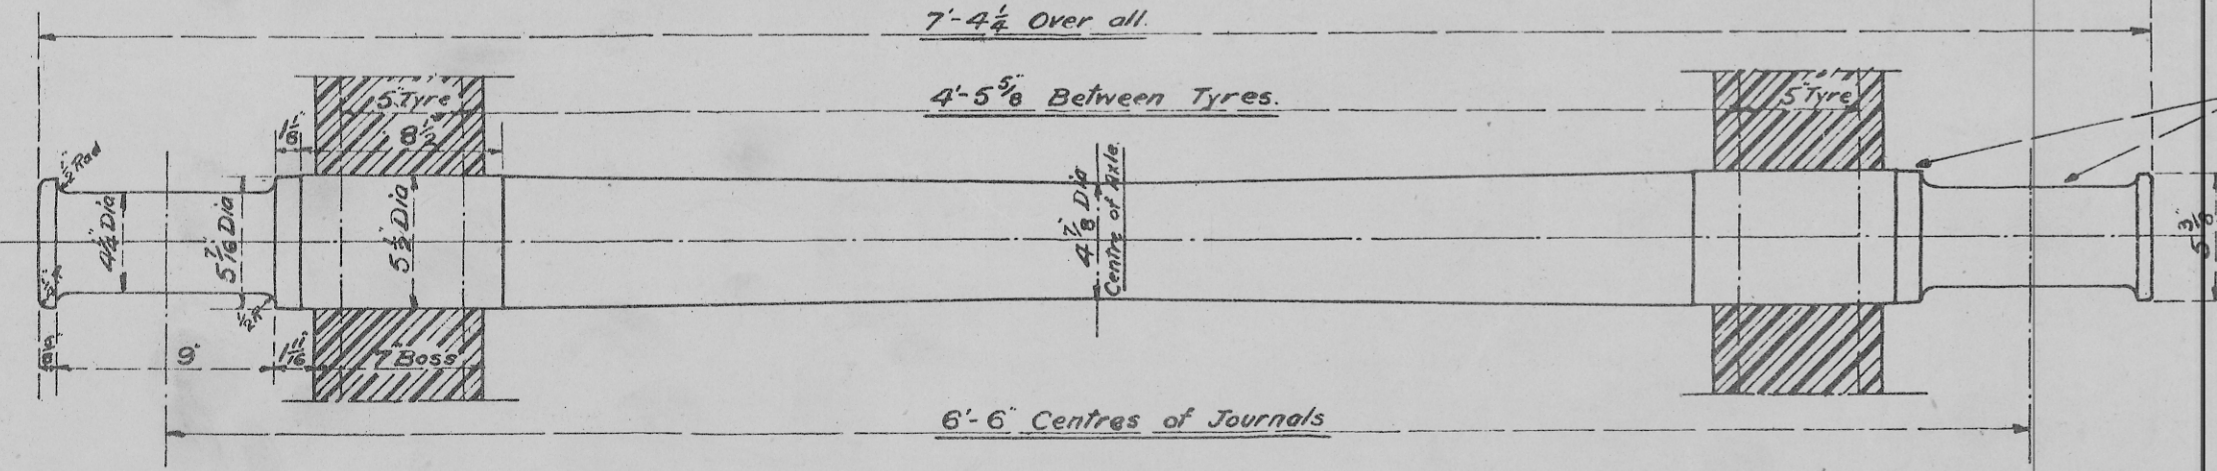 7'-4¼ Over all.
4'-5⅝" Between Tyres.
5" Tyre
5" Tyre
1⅛"
8½"
½" Rad
4¼" Dia
5 7/16" Dia
5½" Dia
4⅞" Dia
Centre of Axle.
5⅜"
½ R
9"
7" Boss
6'-6" Centres of Journals